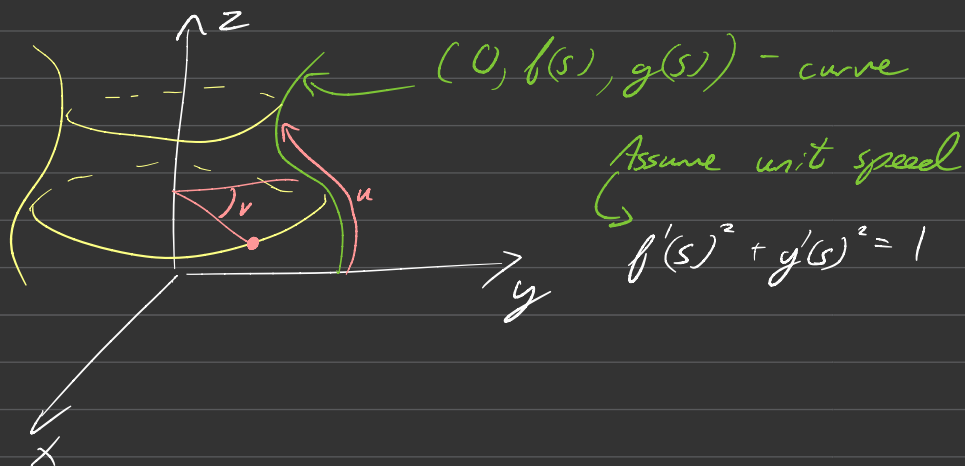 z
(0, f(s), g(s)) - curve
Assume unit speed
u
v
f'(s)² + g'(s)² = 1
y
x